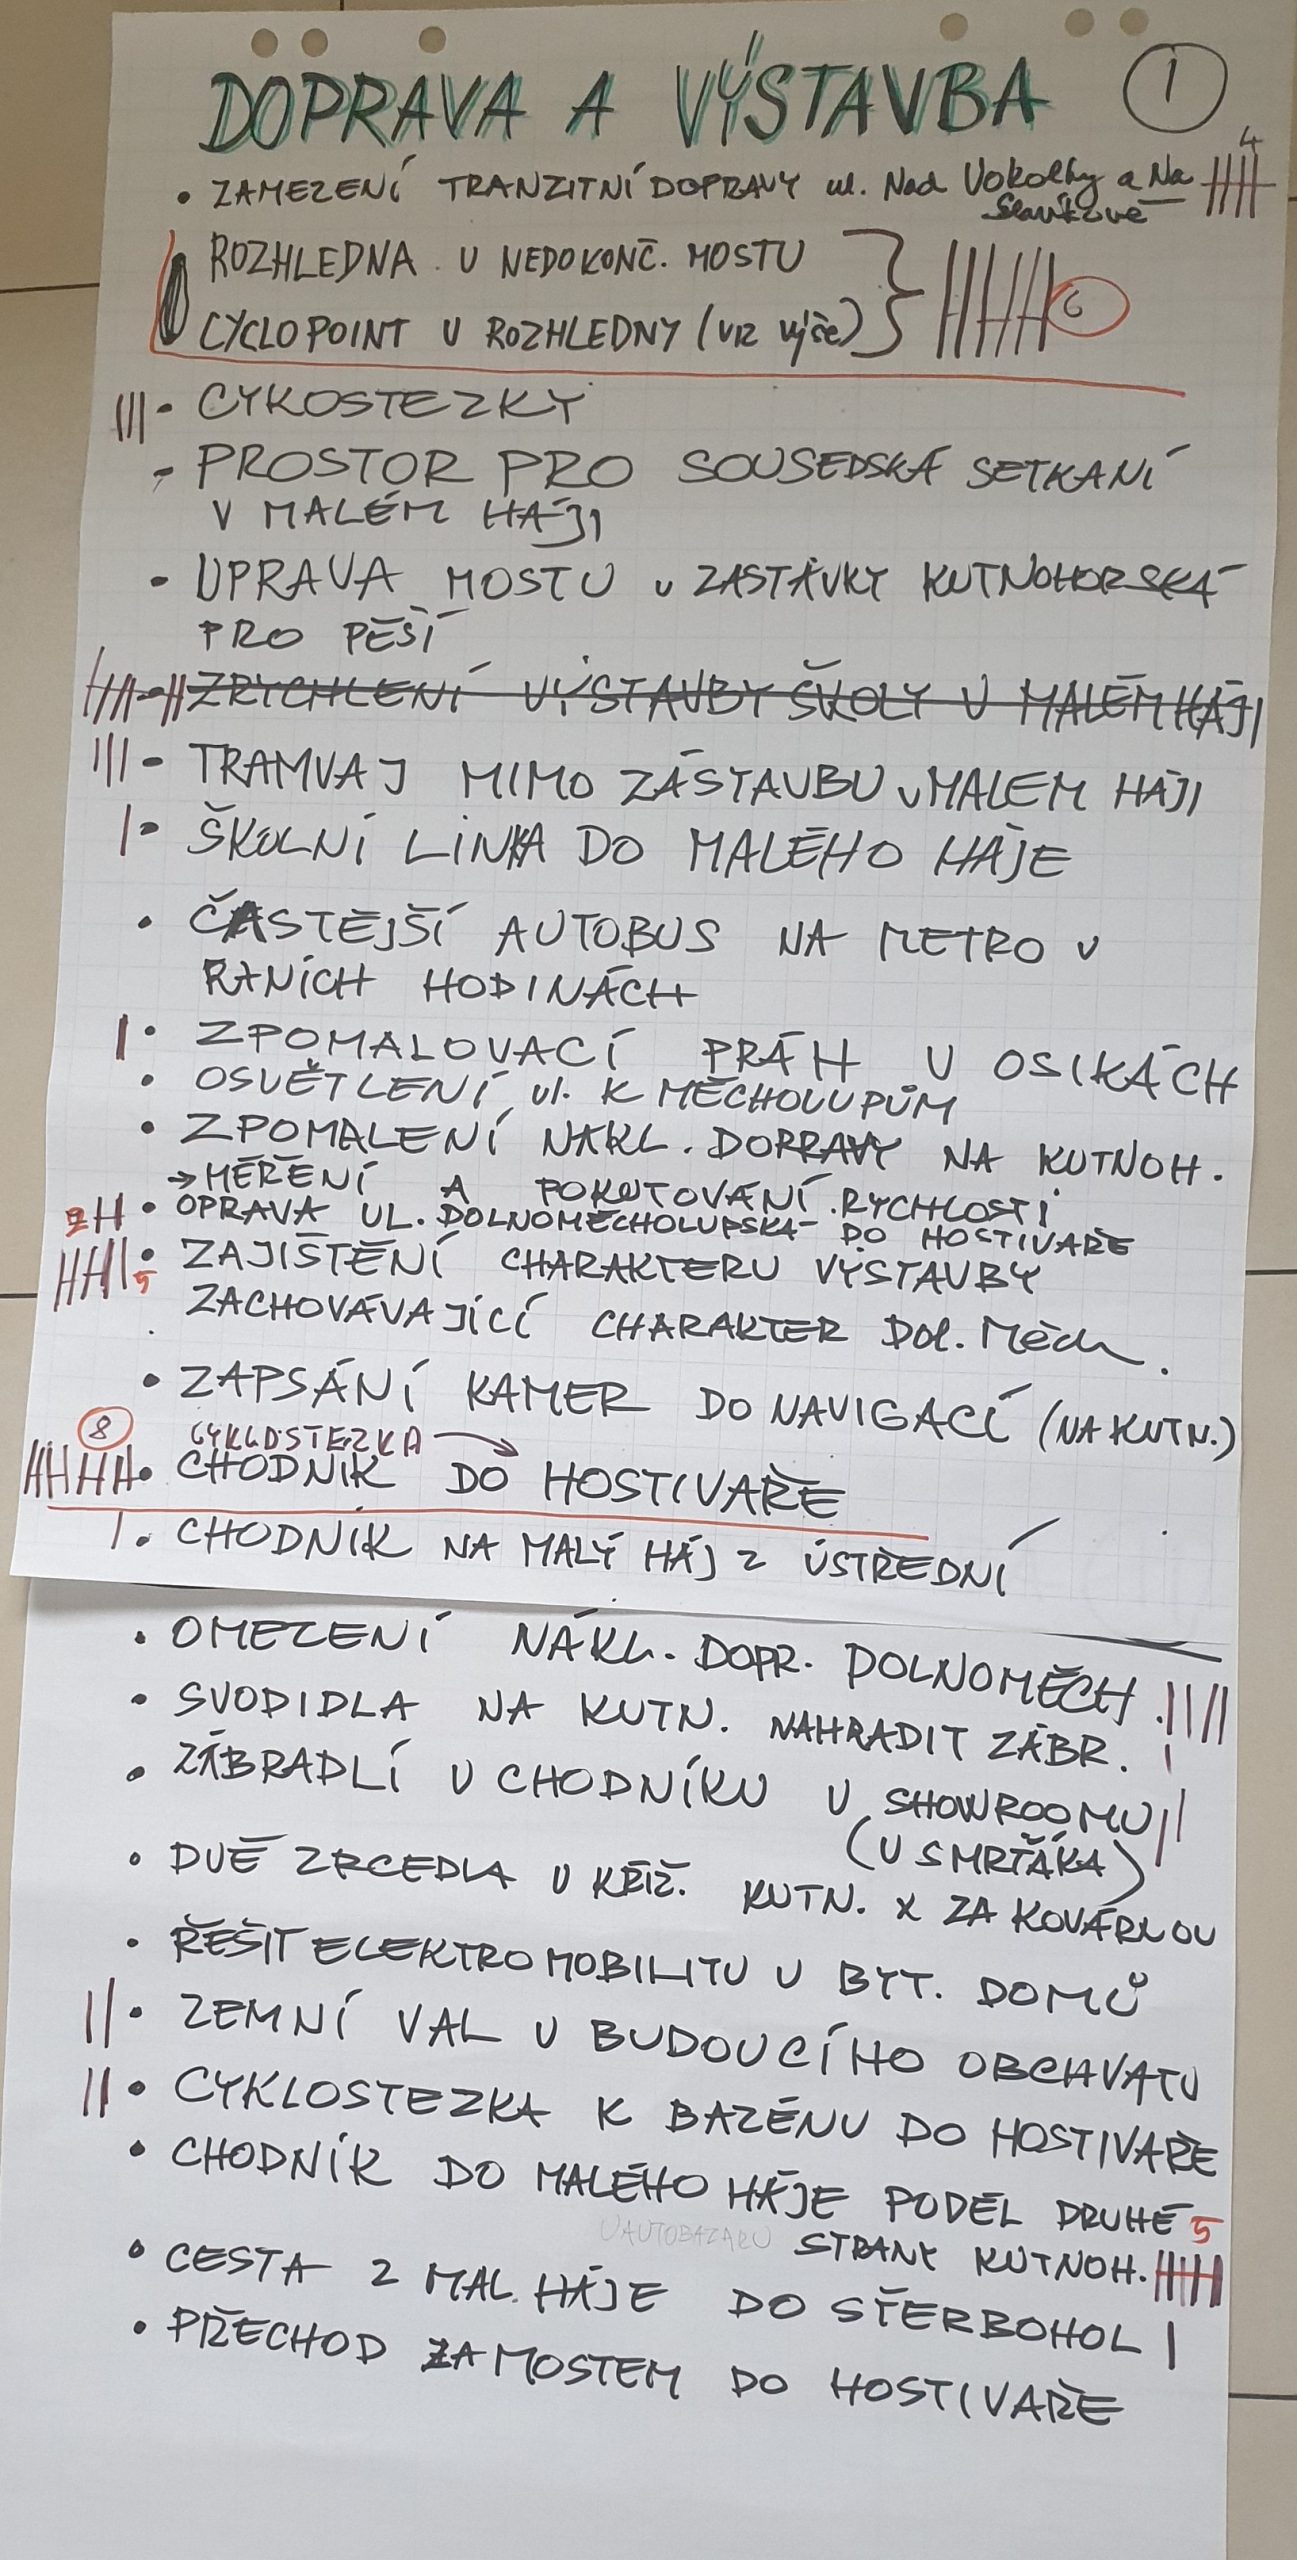 DOPRAVA A VÝSTAVBA 1
• ZAMEZENÍ TRANZITNÍ DOPRAVY ul. Nad Vokolky a Na 4
Slavíkově
ROZHLEDNA U NEDOKONČ. MOSTU
CYCLOPOINT U ROZHLEDNY (viz výše) 6
• CYKOSTEZKY
- PROSTOR PRO SOUSEDSKÁ SETKANÍ
V MALÉM HÁJI
• UPRAVA MOSTU U ZASTÁVKY KUTNOHORSKÁ
PRO PĚŠÍ
- ZRYCHLENÍ VÝSTAVBY ŠKOLY V MALÉM HÁJI
• TRAMVAJ MIMO ZÁSTAVBU v MALEM HÁJI
• ŠKOLNÍ LINKA DO MALÉHO HÁJE
• ČASTĚJŠÍ AUTOBUS NA METRO V
RANÍCH HODINÁCH
• ZPOMALOVACÍ PRÁH U OSIKÁCH
• OSVĚTLENÍ ul. K MĚCHOLUPŮM
• ZPOMALENÍ NÁKL. DOPRAVY NA KUTNOH.
→ MĚŘENÍ A POKUTOVÁNÍ RYCHLOSTI
• OPRAVA UL. DOLNOMĚCHOLUPSKÁ DO HOSTIVAŘE
5 • ZAJIŠTĚNÍ CHARAKTERU VÝSTAVBY
ZACHOVÁVAJÍCÍ CHARAKTER Dol. Měch.
• ZAPSÁNÍ KAMER DO NAVIGACÍ (NA KUTN.)
8 CYKLOSTEZKA →
• CHODNÍK DO HOSTIVAŘE
• CHODNÍK NA MALÝ HÁJ Z ÚSTŘEDNÍ
• OMEZENÍ NÁKL. DOPR. DOLNOMĚCH.
• SVODIDLA NA KUTN. NAHRADIT ZÁBR.
• ZÁBRADLÍ U CHODNÍKU U SHOWROOMU
(U SMRŤÁKA)
• DVĚ ZRCEDLA U KŘIŽ. KUTN. X ZA KOVÁRNOU
• ŘEŠIT ELEKTROMOBILITU U BYT. DOMŮ
• ZEMNÍ VAL U BUDOUCÍHO OBCHVATU
• CYKLOSTEZKA K BAZÉNU DO HOSTIVAŘE
• CHODNÍK DO MALÉHO HÁJE PODÉL DRUHÉ 5
U AUTOBAZARU STRANY KUTNOH.
• CESTA Z MAL. HÁJE DO ŠTĚRBOHOL
• PŘECHOD ZA MOSTEM DO HOSTIVAŘE